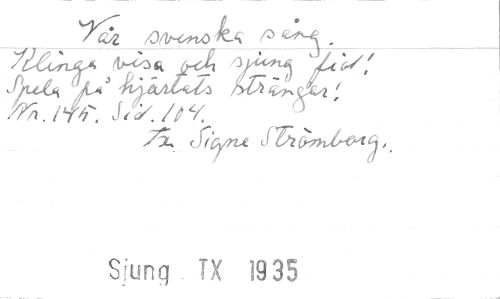 Vår svenska sång.
Klinga visa och sjung fiol!
Spela på hjärtats strängar!
Nr. 145. Sid. 104.
Tx. Signe Strömborg.
Sjung TX 1935